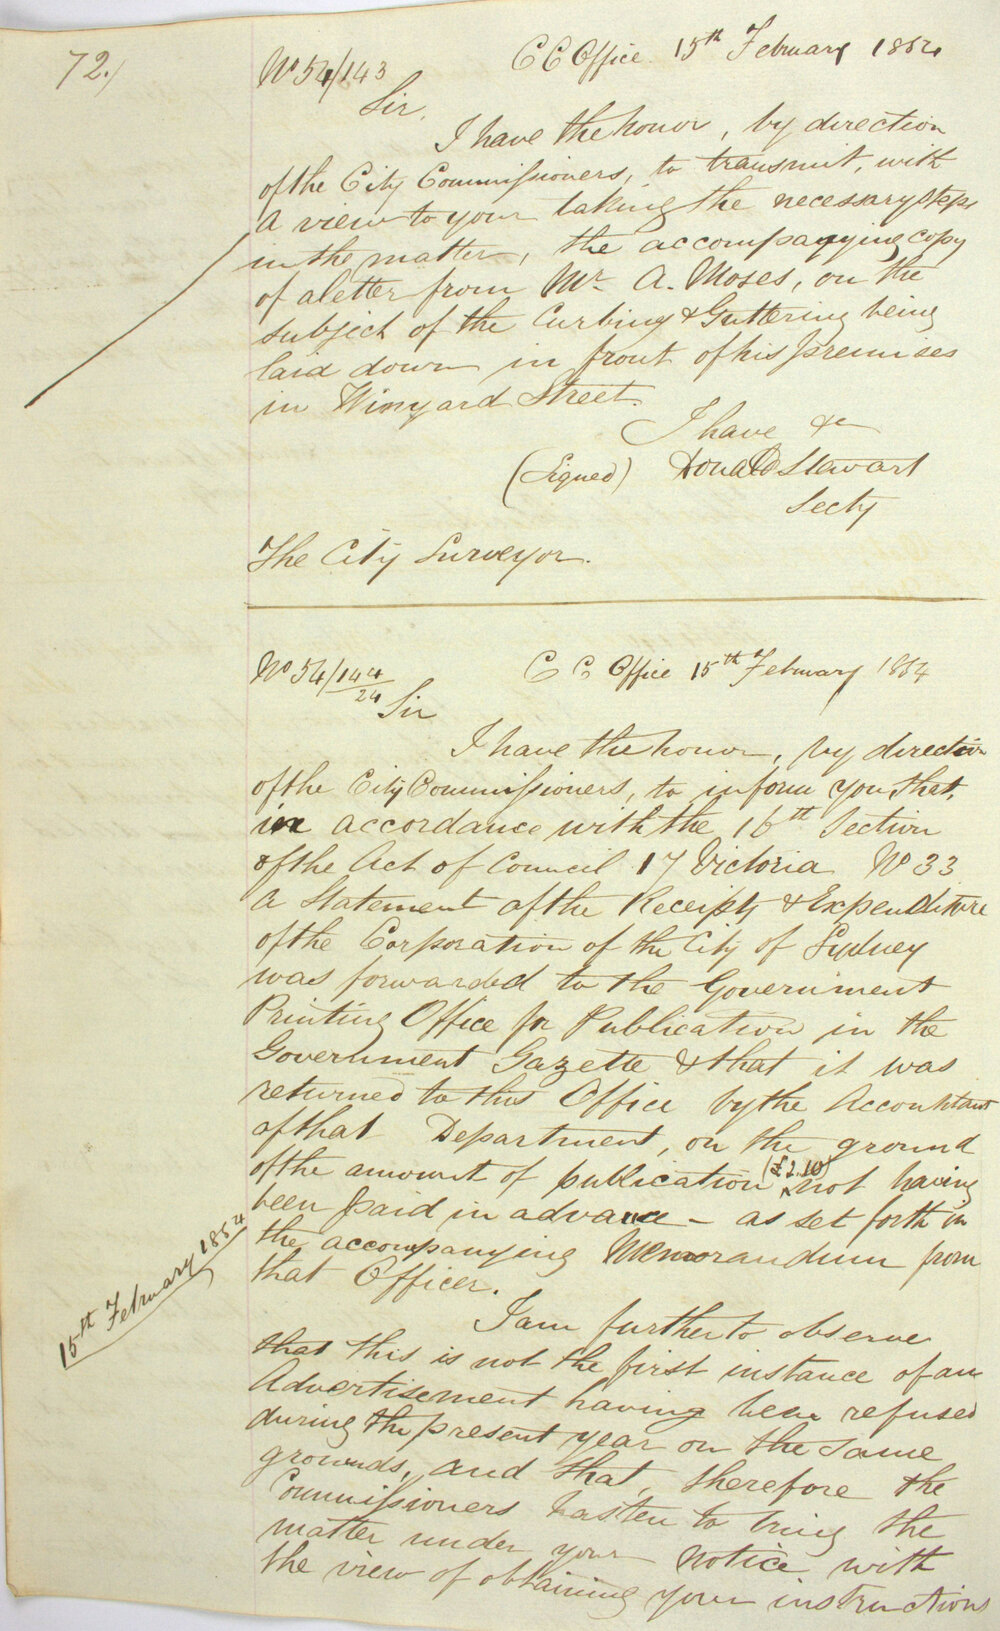 72.
No 54/143
C C Office 15th February 1854
Sir,
I have the honor, by direction
of the City Commissioners, to transmit, with
a view to your taking the necessary steps
in the matter, the accompanying copy
of a letter from Mr. A. Moses, on the
subject of the Curbing & Guttering being
laid down in front of his premises
in Winyard Street.
I have &c
(Signed) Donald Stewart
Secty
The City Surveyor.
No 54/144/24
C C Office 15th February 1854
Sir
I have the honor, by direction
of the City Commissioners, to inform you that,
in accordance with the 16th Section
of the Act of Council 17 Victoria No 33
a Statement of the Receipts & Expenditure
of the Corporation of the City of Sydney
was forwarded to the Government
Printing Office for Publication in the
Government Gazette & that it was
returned to this Office by the Accountant
of that Department, on the ground
of the amount of publication (£2.10) not having
been paid in advance - as set forth in
the accompanying Memorandum from
that Officer.
15th February 1854
I am further to observe
that this is not the first instance of an
Advertisement having been refused
during the present year on the same
grounds, and that, therefore the
Commissioners hasten to bring the
matter under your notice with
the view of obtaining your instructions